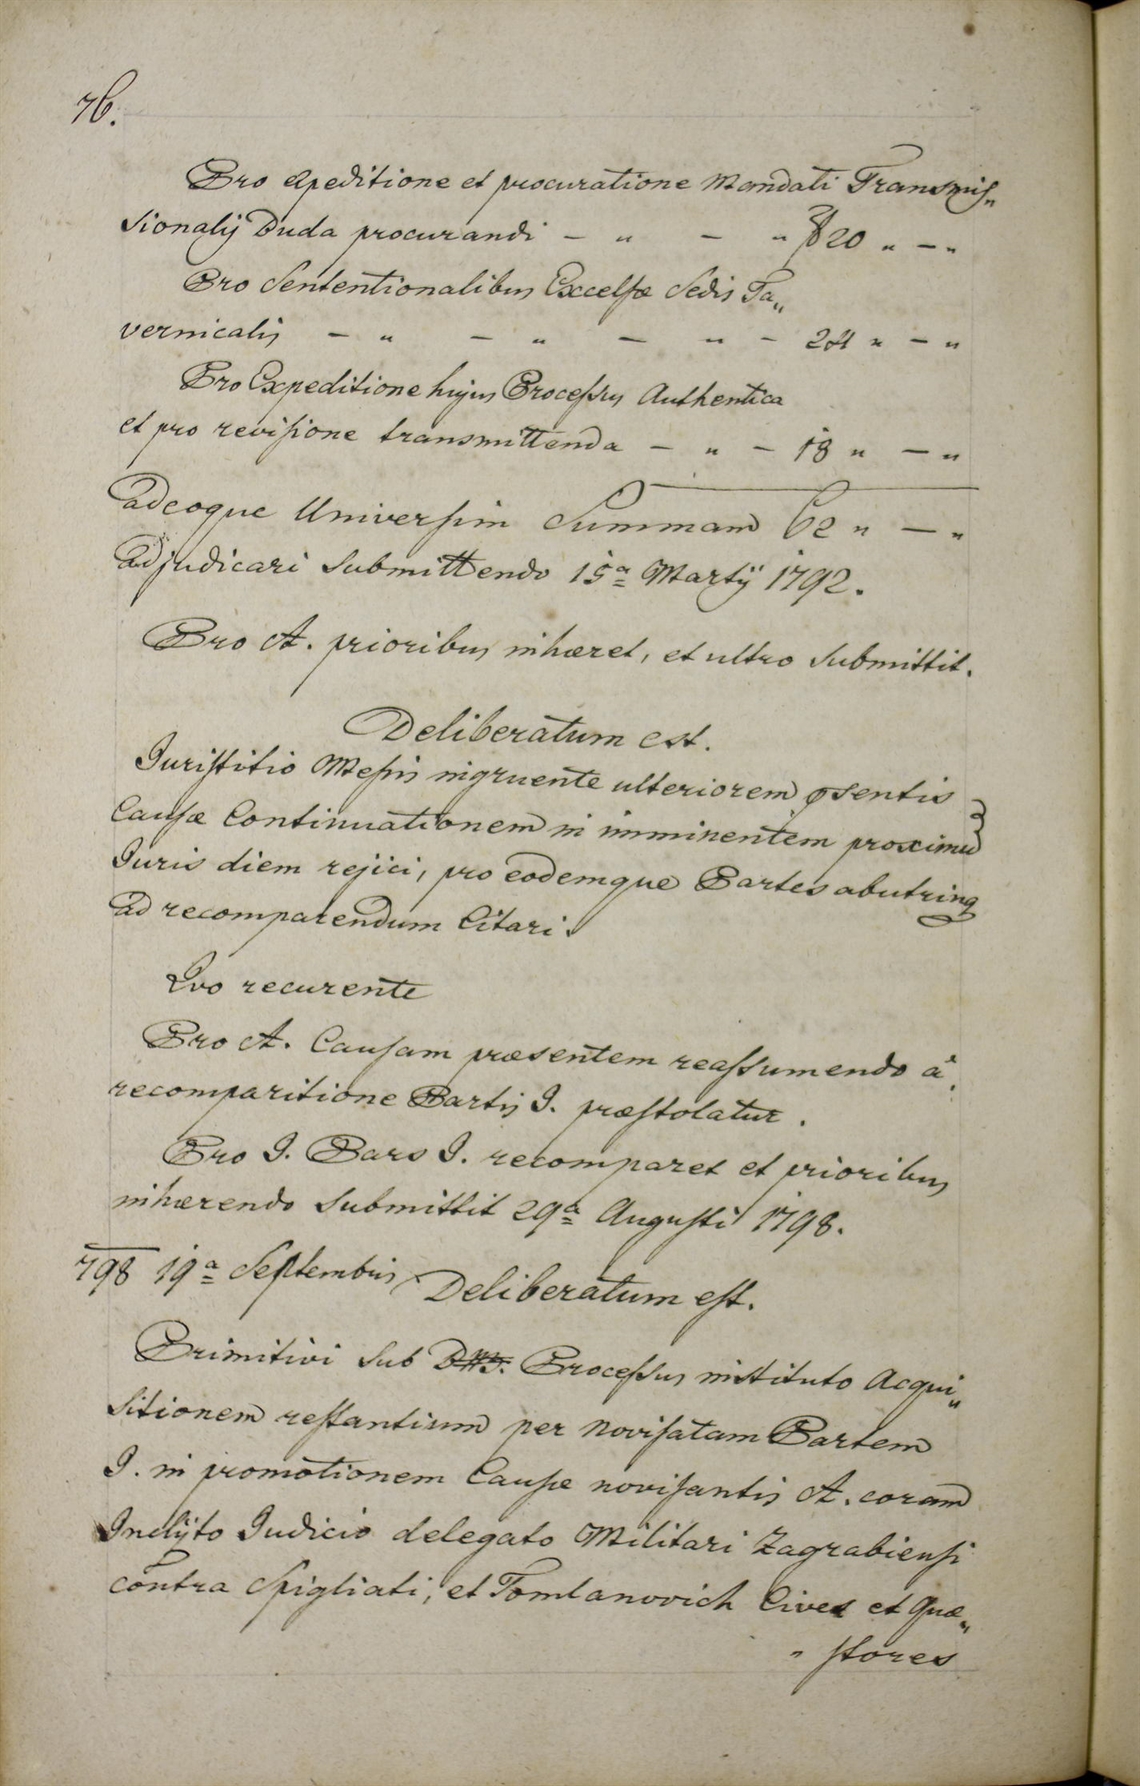 76.
Pro expeditione et procuratione Mandati Transmis„
sionalis Buda procurandi — „ — „ f 20 „ — „
Pro Sententionalibus Excelsæ Sedis Ta„
vernicalis — „ — „ — „ — 24 „ — „
Pro Expeditione hujus Processus Authentica
et pro revisione transmittenda — „ — 18 „ — „
adeoque Universim Summam 62 „ — „
adjudicari submittendo 15a Martÿ 1792.
Pro A. prioribus inhæret, et ultro submittit.
Deliberatum est.
Juristitio Messis ingruente ulteriorem psentis
Causæ Continuationem in imminentem proximu
Juris diem rejici, pro eodemque Partes abutrinq
ad recomparendum Citari.
Quo recurente
Pro A. Causam præsentem reassumendo a
recomparitione Partis I. præstolatur.
Pro I. Pars I. recomparet et prioribus
inhærendo submittit 29a Augusti 1798.
798 19a Septembris Deliberatum est.
Primitivi sub Processus instituto Acqui„
sitionem restantium per novisatam Partem
I. in promotionem Causæ novisantis A. coram
Inclÿto Judicio delegato Militari Zagrabiensi
contra Spigliati, et Tomlanovich Cives et Quæ„
„ stores